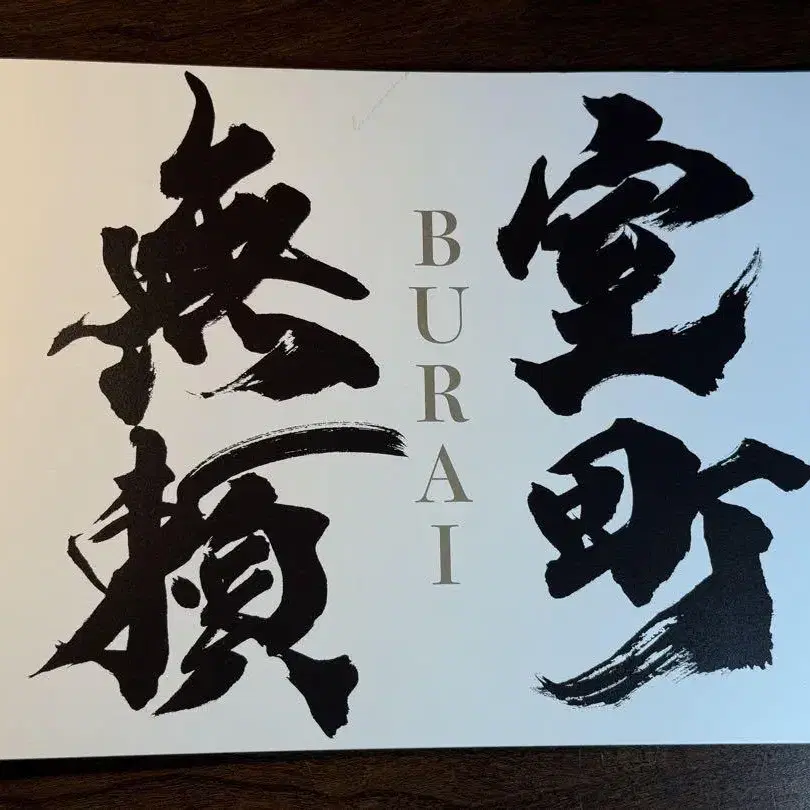 室町
BURAI
無頼